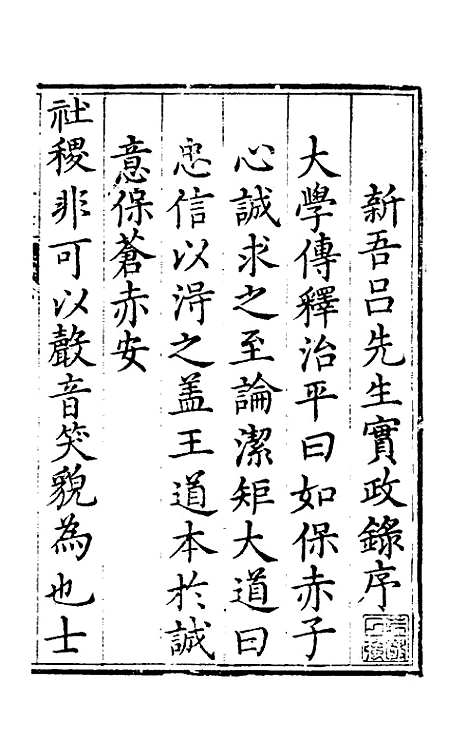 新吾吕先生實政錄序
大學傳釋治平曰如保赤子
心誠求之至論潔矩大道曰
忠信以淂之盖王道本扵誠
意保蒼赤安
社稷非可以聲音笑貌為也士